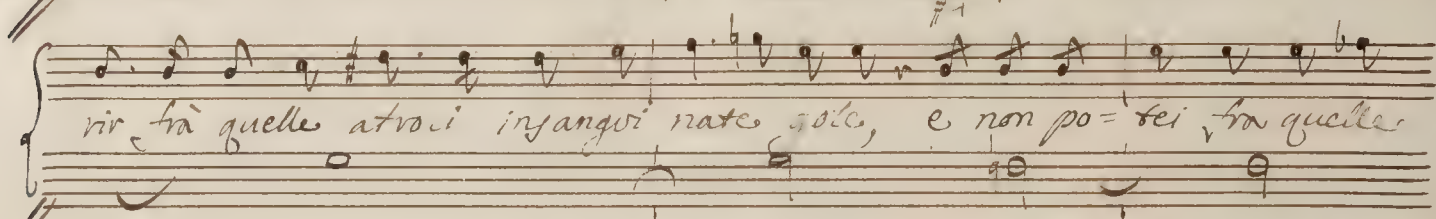 rir frà quelle atroci insangui nate gole, e non po= tei fra quelle